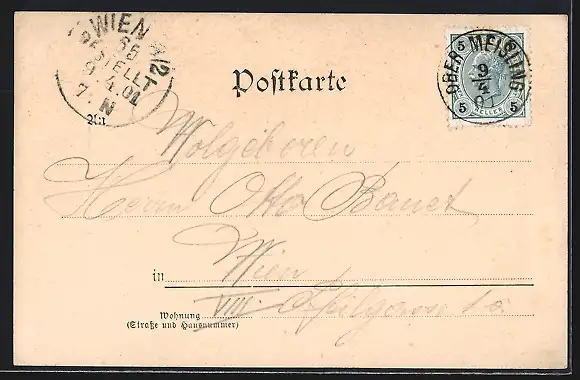 WIEN
65
BESTELLT
9.4.01
7. N
5 5
OBER MEISLING
9
4
01
5 5
HELLER
Postkarte
An
Wolgeboren
Herrn Otto Banet
in Wien
Wohnung VIII.
(Straße und Hausnummer)